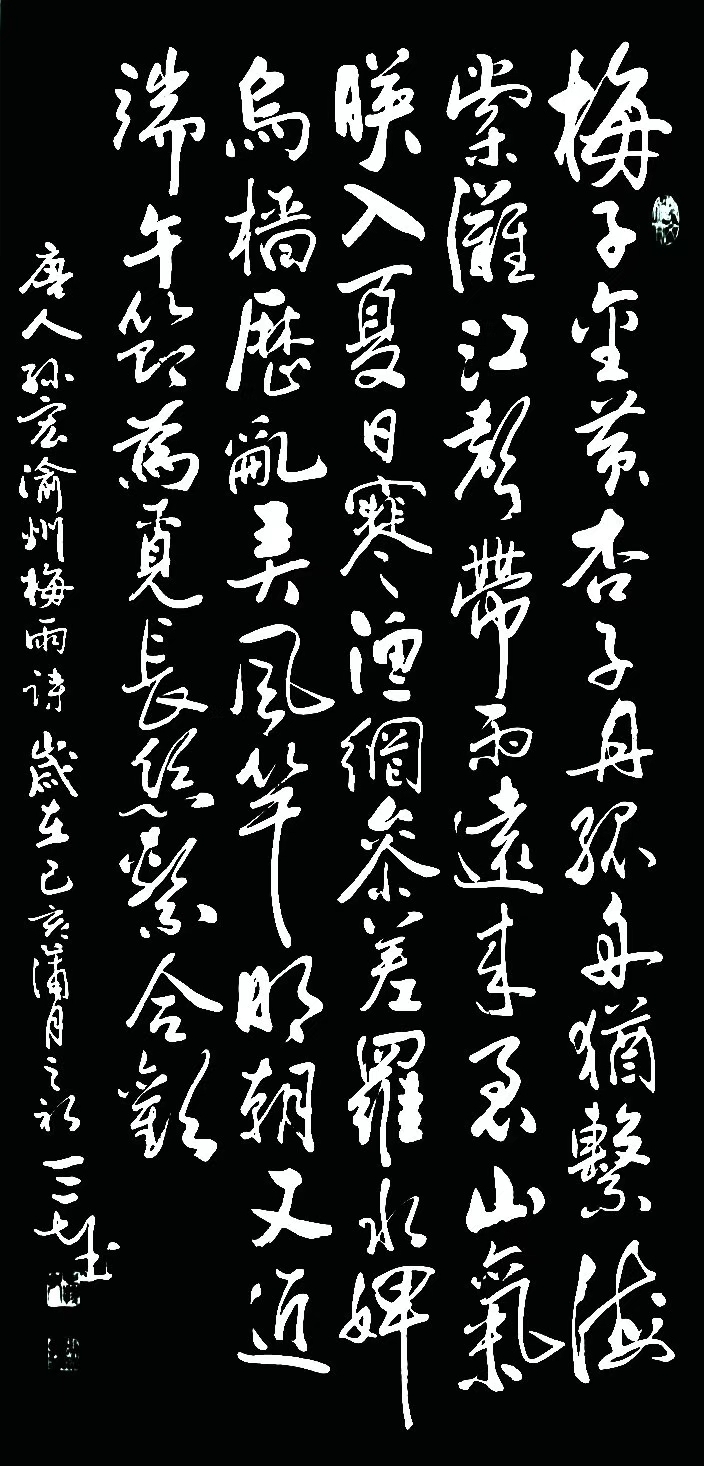 梅子金黄杏子丹孤舟猶繫海
棠灘江聲帶雨遠來急山氣
暎入夏日寒漁網參差羅水婢
烏檣歷亂弄風竿明朝又近
端午節為覓長絲繫合歡
唐人孫宏渝州梅雨詩歲在己亥蒲月之初